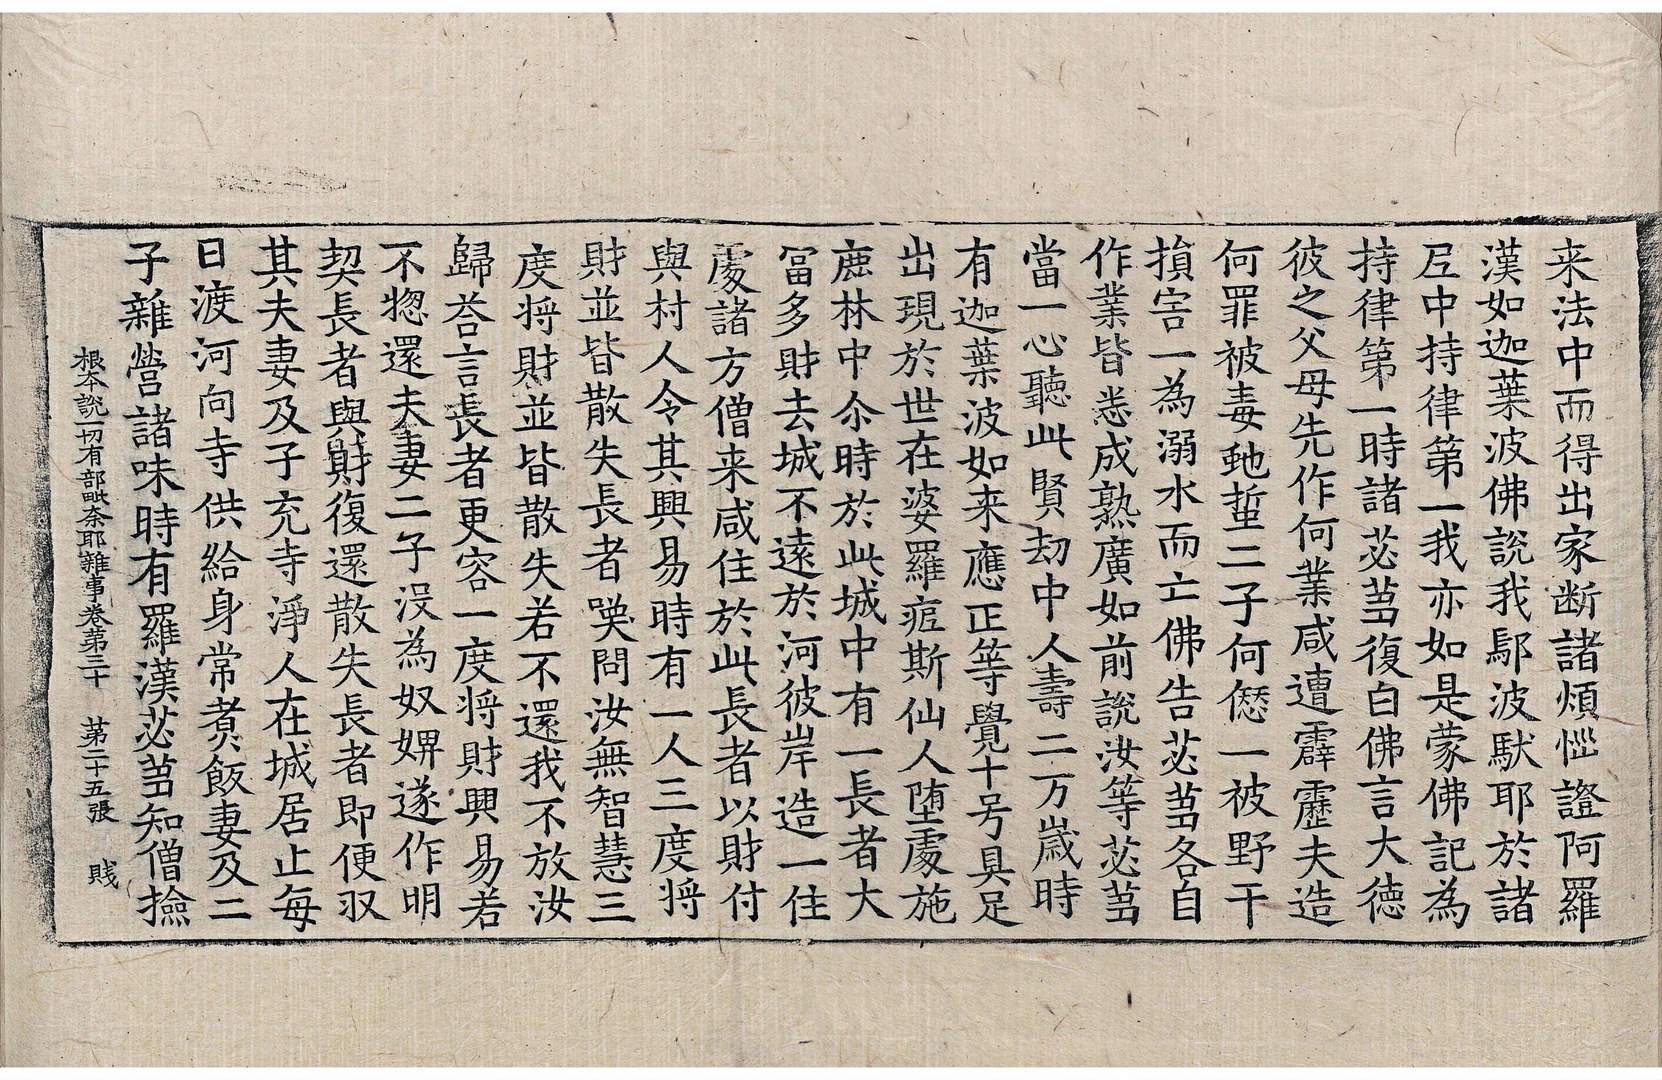 来法中而得出家断諸煩惱證阿羅
漢如迦葉波佛說我鄔波馱耶於諸
尼中持律第一我亦如是蒙佛記為
持律第一時諸苾芻復白佛言大德
彼之父母先作何業咸遭霹靂夫造
何罪被毒虵蜇二子何𠎝一被野干
損害一為溺水而亡佛告苾芻各自
作業皆悉成熟廣如前說汝等苾芻
當一心聽此賢劫中人壽二万歲時
有迦葉波如来應正等覺十号具足
出現於世在婆羅痆斯仙人堕處施
鹿林中尒時於此城中有一長者大
冨多財去城不遠於河彼岸造一住
處諸方僧来咸住於此長者以財付
與村人令其興易時有一人三度将
財並皆散失長者哭問汝無智慧三
度将財並皆散失若不還我不放汝
歸荅言長者更容一度将財興易若
不惣還夫妻二子沒為奴婢遂作明
契長者與財復還散失長者即便収
其夫妻及子充寺淨人在城居止每
日渡河向寺供給身常煮飯妻及二
子雜營諸味時有羅漢苾芻知僧撿
根本說一切有部毗奈耶雜事卷第三十 第二十五張 賤